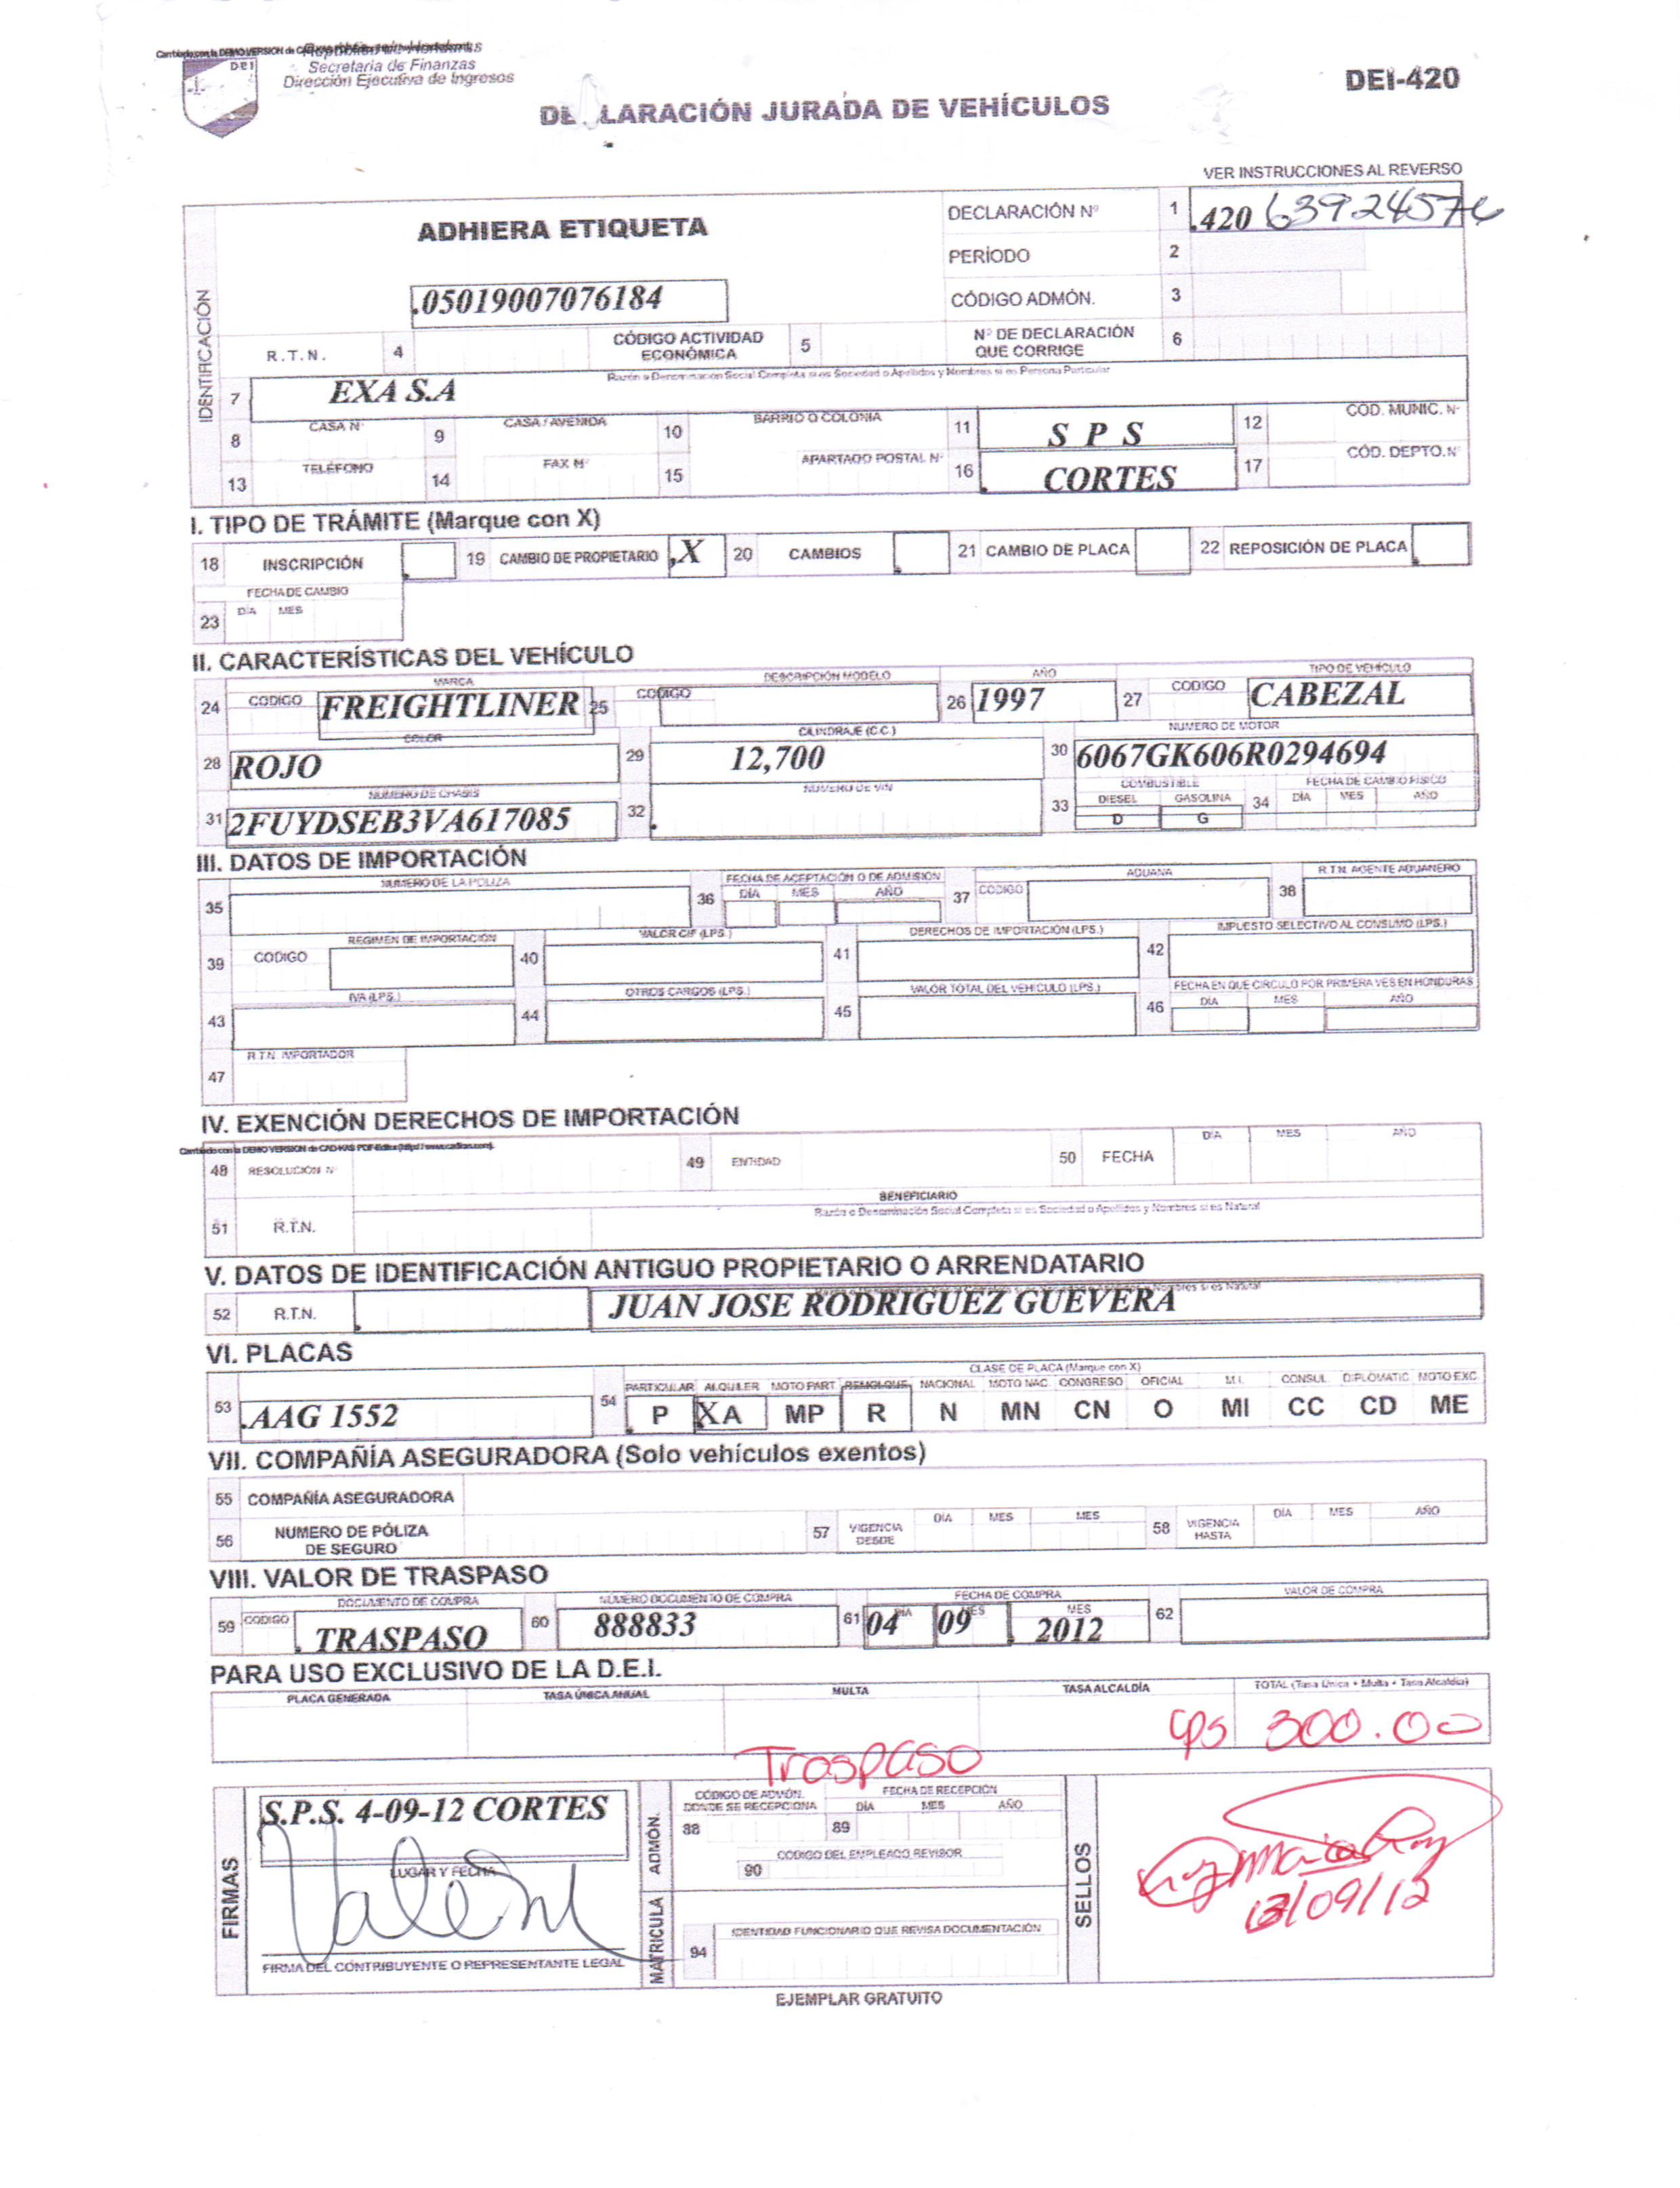 República de Honduras
Secretaría de Finanzas
Dirección Ejecutiva de Ingresos
DEI
DEI-420
DE LARACIÓN JURADA DE VEHÍCULOS
VER INSTRUCCIONES AL REVERSO
IDENTIFICACIÓN
ADHIERA ETIQUETA
DECLARACIÓN Nº 1 .420
PERÍODO 2
.05019007076184
CÓDIGO ADMÓN. 3
R.T.N. 4 CÓDIGO ACTIVIDAD ECONÓMICA 5 Nº DE DECLARACIÓN QUE CORRIGE 6
Razón o Denominación Social Completa si es Sociedad o Apellidos y Nombres si es Persona Particular
7 EXA S.A
8 CASA Nº 9 CASA / AVENIDA 10 BARRIO O COLONIA 11 S P S 12 COD. MUNIC. Nº
13 TELÉFONO 14 FAX Nº 15 APARTADO POSTAL Nº 16 CORTES 17 CÓD. DEPTO. Nº
I. TIPO DE TRÁMITE (Marque con X)
18 INSCRIPCIÓN 19 CAMBIO DE PROPIETARIO X 20 CAMBIOS 21 CAMBIO DE PLACA 22 REPOSICIÓN DE PLACA
FECHA DE CAMBIO
23 DÍA MES
II. CARACTERÍSTICAS DEL VEHÍCULO
MARCA DESCRIPCIÓN MODELO AÑO TIPO DE VEHÍCULO
24 CODIGO FREIGHTLINER 25 CODIGO 26 1997 27 CODIGO CABEZAL
COLOR CILINDRAJE (C.C.) NUMERO DE MOTOR
28 ROJO 29 12,700 30 6067GK606R0294694
NUMERO DE CHASIS NUMERO DE VIN COMBUSTIBLE FECHA DE CAMBIO FISICO
31 2FUYDSEB3VA617085 32 33 DIESEL D GASOLINA G 34 DÍA MES AÑO
III. DATOS DE IMPORTACIÓN
35 NUMERO DE LA POLIZA 36 FECHA DE ACEPTACIÓN O DE ADMISION DÍA MES AÑO 37 CODIGO ADUANA 38 R.T.N. AGENTE ADUANERO
39 CODIGO REGIMEN DE IMPORTACIÓN 40 VALOR CIF (LPS.) 41 DERECHOS DE IMPORTACIÓN (LPS.) 42 IMPUESTO SELECTIVO AL CONSUMO (LPS.)
43 IVA (LPS.) 44 OTROS CARGOS (LPS.) 45 VALOR TOTAL DEL VEHICULO (LPS.) 46 FECHA EN QUE CIRCULO POR PRIMERA VES EN HONDURAS DIA MES AÑO
47 R.T.N. IMPORTADOR
IV. EXENCIÓN DERECHOS DE IMPORTACIÓN
Cambiado con la DEMO VERSION de CAD-KAS PDF-Editor (http://www.cadkas.com).
48 RESOLUCIÓN Nº 49 ENTIDAD 50 FECHA DIA MES AÑO
BENEFICIARIO
51 R.T.N. Razón o Denominación Social Completa si es Sociedad o Apellidos y Nombres si es Natural
V. DATOS DE IDENTIFICACIÓN ANTIGUO PROPIETARIO O ARRENDATARIO
52 R.T.N. JUAN JOSE RODRIGUEZ GUEVERA
VI. PLACAS
CLASE DE PLACA (Marque con X)
PARTICULAR ALQUILER MOTO PART. REMOLQUE NACIONAL MOTO NAC. CONGRESO OFICIAL M.I. CONSUL DIPLOMATIC MOTO EXC.
53 .AAG 1552 54 P XA MP R N MN CN O MI CC CD ME
VII. COMPAÑÍA ASEGURADORA (Solo vehículos exentos)
55 COMPAÑÍA ASEGURADORA
56 NUMERO DE PÓLIZA DE SEGURO 57 VIGENCIA DESDE DIA MES MES 58 VIGENCIA HASTA DÍA MES AÑO
VIII. VALOR DE TRASPASO
DOCUMENTO DE COMPRA NÚMERO DOCUMENTO DE COMPRA FECHA DE COMPRA VALOR DE COMPRA
59 CODIGO TRASPASO 60 888833 61 04 DIA 09 MES 2012 MES 62
PARA USO EXCLUSIVO DE LA D.E.I.
PLACA GENERADA TASA ÚNICA ANUAL MULTA TASA ALCALDÍA TOTAL (Tasa Única + Multa + Tasa Alcaldía)
Lps 300.00
Traspaso
FIRMAS
S.P.S. 4-09-12 CORTES
LUGAR Y FECHA
FIRMA DEL CONTRIBUYENTE O REPRESENTANTE LEGAL
MATRICULA ADMÓN.
CÓDIGO DE ADMÓN. DONDE SE RECEPCIONA FECHA DE RECEPCIÓN DÍA MES AÑO
88 89
CODIGO DEL EMPLEADO REVISOR
90
IDENTIDAD FUNCIONARIO QUE REVISA DOCUMENTACIÓN
94
SELLOS
13/09/12
EJEMPLAR GRATUITO